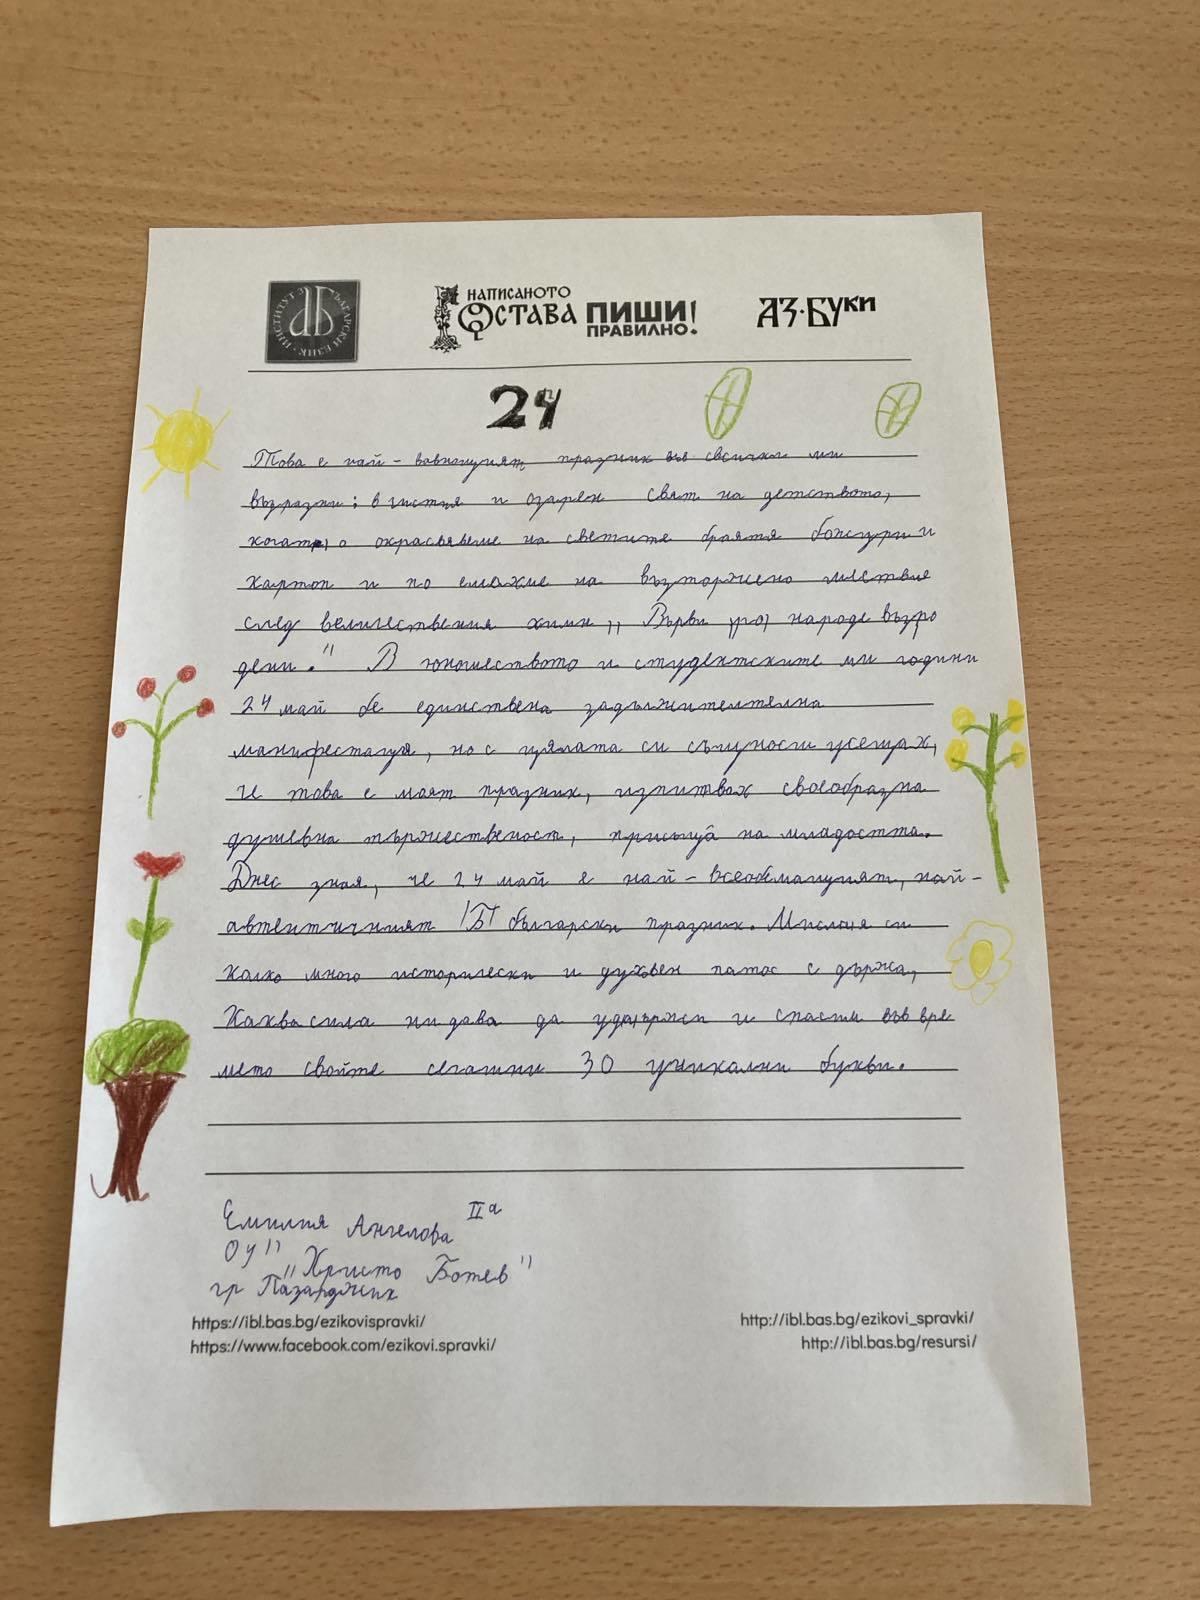 ИНСТИТУТ ЗА БЪЛГАРСКИ ЕЗИК
НАПИСАНОТО ОСТАВА ПИШИ ПРАВИЛНО!
АЗ·БУКИ
24
Това е най-вовнщият празник във свсички ми
възразни: в чистия и озарен свят на детството,
когато окрасявеме на светите братя божури и
хартоп и по емахме на възторжено шествие
след величествения химн „Върви, народе възро
дени." В юношеството и студентските ми години
24 май бе единствена задължителтелна
манифестация, но с цялата си същности усещах,
че това е моят празник, изпитвах своеобразна
душевна тържественост, присъща на младостта.
Днес зная, че 24 май е най-всеобемащият, най-
автентичният български празник. Мисля си
колко много исторически и духвен патос с държа,
Каква сила ни дава да удържи и спасти във вре
мето свойте сегашни 30 уникални букви.
Емилия Ангелова IIа
ОУ "
"Христо Ботев"
гр Пазарджик
https://ibl.bas.bg/ezikovispravki/
http://ibl.bas.bg/ezikovi_spravki/
https://www.facebook.com/ezikovi.spravki/
http://ibl.bas.bg/resursi/